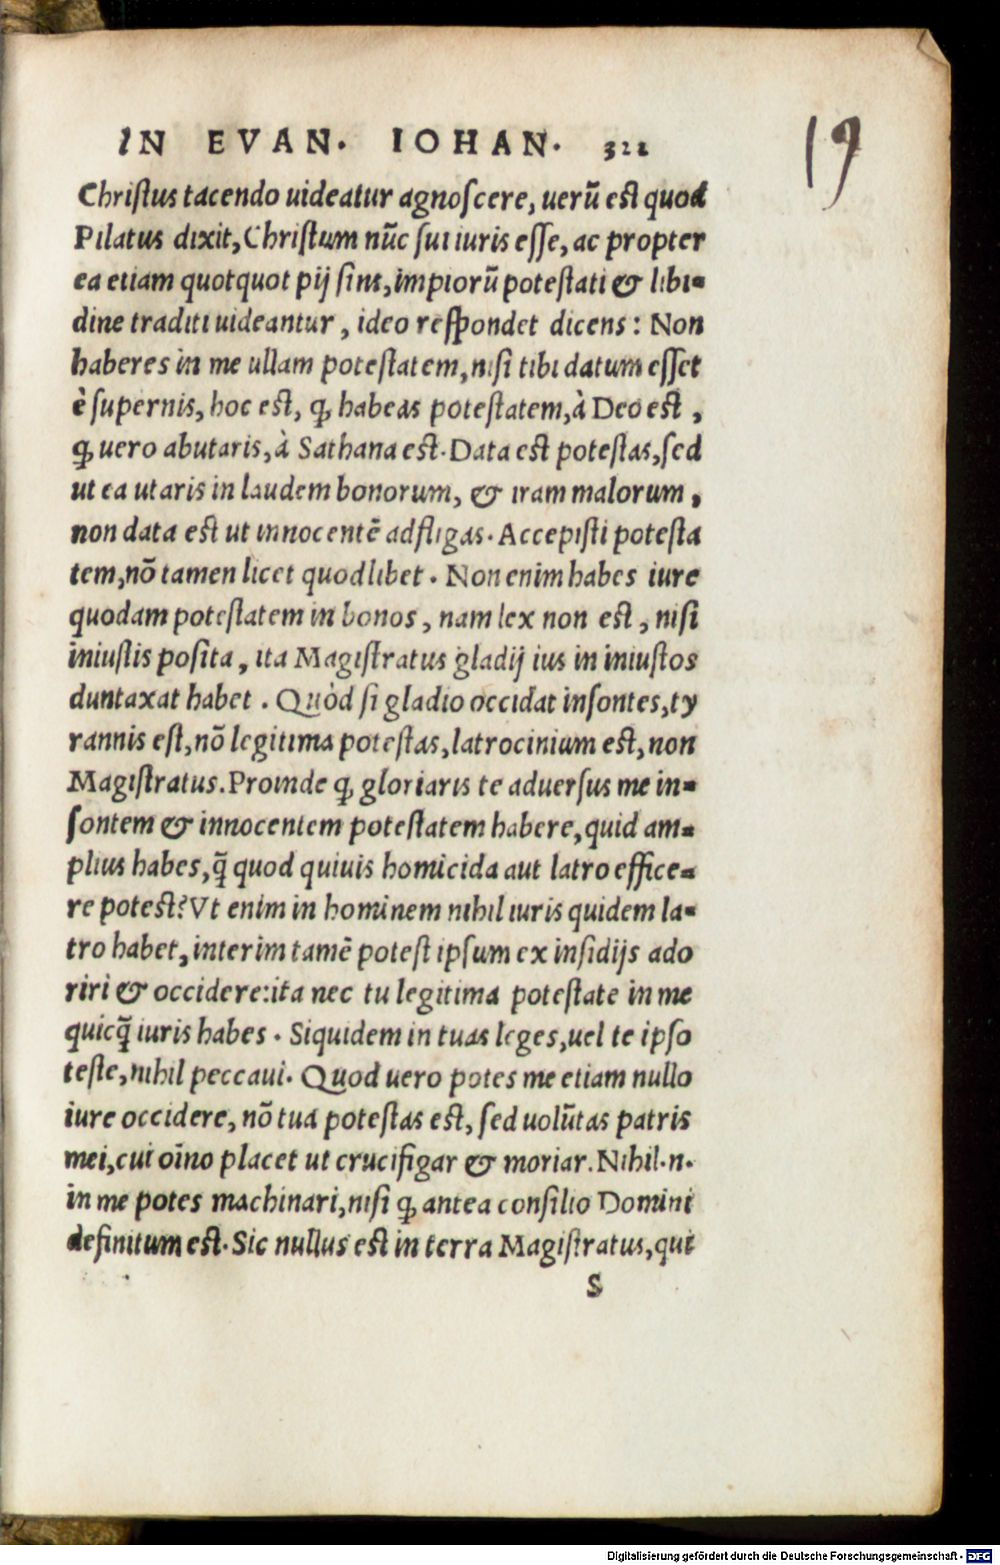 IN EVAN. IOHAN. 321
19
Christus tacendo uideatur agnoscere, uerũ est quod
Pilatus dixit, Christum nũc sui iuris esse, ac propter
ea etiam quotquot pij sint, impiorũ potestati & libi-
dine traditi uideantur, ideo respondet dicens: Non
haberes in me ullam potestatem, nisi tibi datum esset
è supernis, hoc est, ꝙ habeas potestatem, à Deo est,
ꝙ uero abutaris, à Sathana est. Data est potestas, sed
ut ea utaris in laudem bonorum, & iram malorum,
non data est ut innocentẽ adfligas. Accepisti potesta
tem, nõ tamen licet quodlibet. Non enim habes iure
quodam potestatem in bonos, nam lex non est, nisi
iniustis posita, ita Magistratus gladij ius in iniustos
duntaxat habet. Quòd si gladio occidat insontes, ty
rannis est, nõ legitima potestas, latrocinium est, non
Magistratus. Proinde ꝙ gloriaris te aduersus me in-
sontem & innocentem potestatem habere, quid am-
plius habes, q̃ quod quiuis homicida aut latro effice-
re potest? Vt enim in hominem nihil iuris quidem la-
tro habet, interim tamẽ potest ipsum ex insidijs ado
riri & occidere: ita nec tu legitima potestate in me
quicq̃ iuris habes. Siquidem in tuas leges, uel te ipso
teste, nihil peccaui. Quod uero potes me etiam nullo
iure occidere, nõ tua potestas est, sed uolũtas patris
mei, cui oĩno placet ut crucifigar & moriar. Nihil .n.
in me potes machinari, nisi ꝙ antea consilio Domini
definitum est. Sic nullus est in terra Magistratus, qui
S
Digitalisierung gefördert durch die Deutsche Forschungsgemeinschaft - DFG